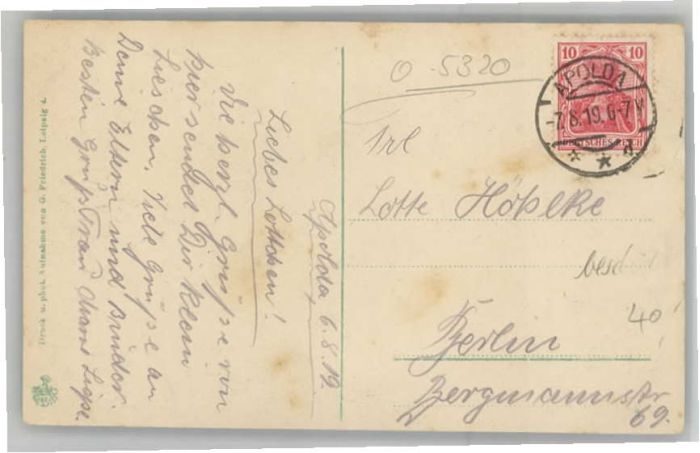 Apolda 6.8.19.
Liebes Lottchen!
Vie herzl. Grüße von
hier sendet Dir klein
Lieschen. Viele Grüße an
Deine Eltern und Bruder.
Besten Gruß Frau
Druck u. phot. Aufnahme von G. Friedrich, Leipzig 4.
O -5320
10 10
DEUTSCHES REICH
APOLDA
-7.8.19.6-7V
* * a
Frl
Lotte
besch
40
Berlin
Bergmannstr
69.